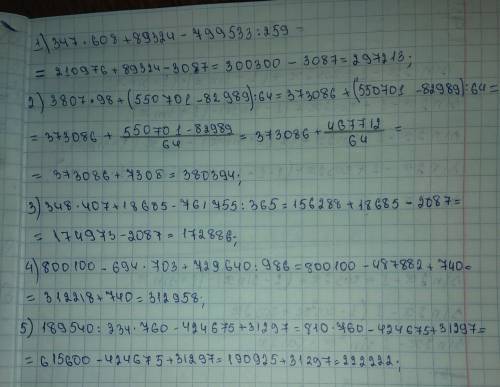 1) 347 · 608 + 89324 - 799533 : 259 =
= 210976 + 89324 - 3087 = 300300 - 3087 = 297213;
2) 3807 · 98 + (550701 - 82989) : 64 = 373086 + (550701 - 82989) : 64 =
= 373086 + (550701 - 82989)/64 = 373086 + 467712/64 =
= 373086 + 7308 = 380394;
3) 348 · 407 + 18685 - 761755 : 365 = 156288 + 18685 - 2087 =
= 174973 - 2087 = 172886;
4) 800100 - 694 · 703 + 729640 : 986 = 800100 - 487882 + 740 =
= 312218 + 740 = 312958;
5) 189540 : 334 · 760 - 424675 + 31297 = 810 · 760 - 424675 + 31297 =
= 615600 - 424675 + 31297 = 190925 + 31297 = 222222;